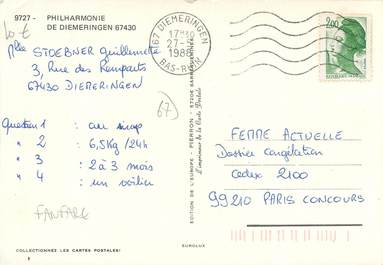 9727 - PHILHARMONIE
DE DIEMERINGEN 67430
10 €
Mlle STOEBNER Guillemette
3, Rue des Remparts
67430 DIEMERINGEN
Question 1 : au sirop
" 2 : 6,5Kg / 24h
" 3 : 2 à 3 mois
" 4 : un voilier
FANFARE
COLLECTIONNEZ LES CARTES POSTALES!
67 DIEMERINGEN
27-
1986
BAS-RHIN
67
EDITION DE L'EUROPE - PIERRON - 57206 SARREGUEMINES
L'imprimeur de la Carte Postale
EUROLUX
2,00
FEMME ACTUELLE
Dossier Congélation
Cedex 2100
99210 PARIS CONCOURS